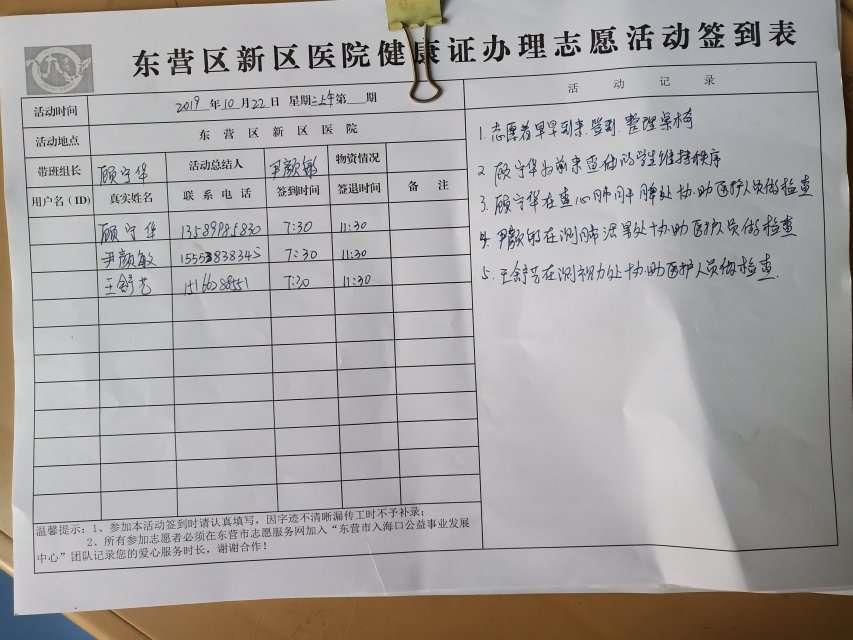 东营区新区医院健康证办理志愿活动签到表
活动时间 2019 年 10 月 22 日 星期二上午第 期
活动地点 东营区新区医院
带班组长 顾宁华 活动总结人 尹颜敏 物资情况
用户名(ID) 真实姓名 联系电话 签到时间 签退时间 备注
顾宁华 13589985830 7:30 11:30
尹颜敏 15553838345 7:30 11:30
王舒艺 7:30 11:30
温馨提示:1、参加本活动签到时请认真填写,因字迹不清晰漏传工时不予补录;
2、所有参加志愿者必须在东营市志愿服务网加入“东营市入海口公益事业发展
中心”团队记录您的爱心服务时长,谢谢合作!
活动记录
1.志愿者早早到来.签到.整理桌椅
2.顾宁华为前来查体的学生维持秩序
3.顾宁华在查心肺肝脾处协助医护人员做检查
4.尹颜敏在测肺活量处协助医护人员做检查
5.王舒艺在测视力处协助医护人员做检查.